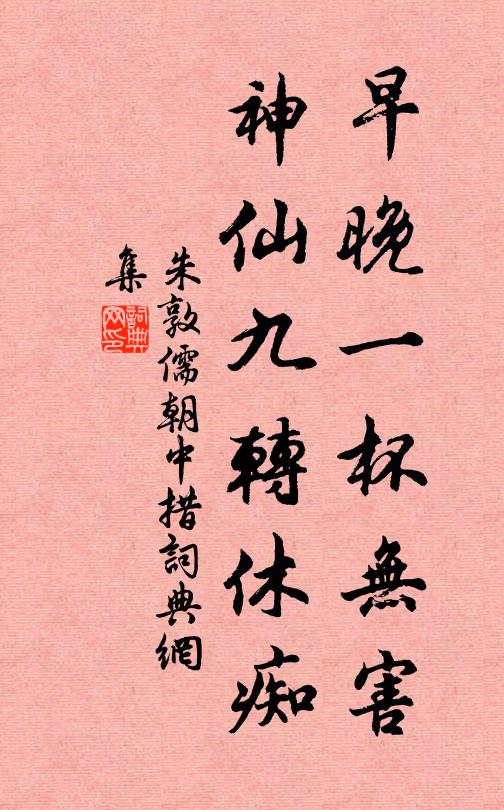 早晚一杯無害
神仙九轉休痴
朱敦儒朝中措詞典網
集
詞典
网印